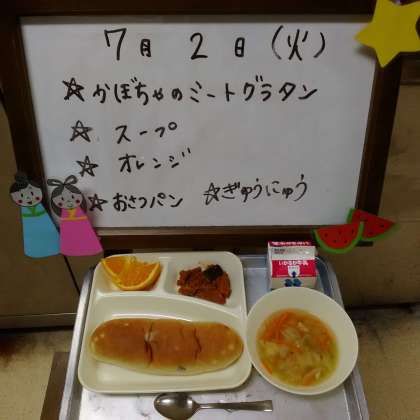 7月 2日(火)
☆かぼちゃのミートグラタン
☆スープ
☆オレンジ
☆おさつパン ☆ぎゅうにゅう